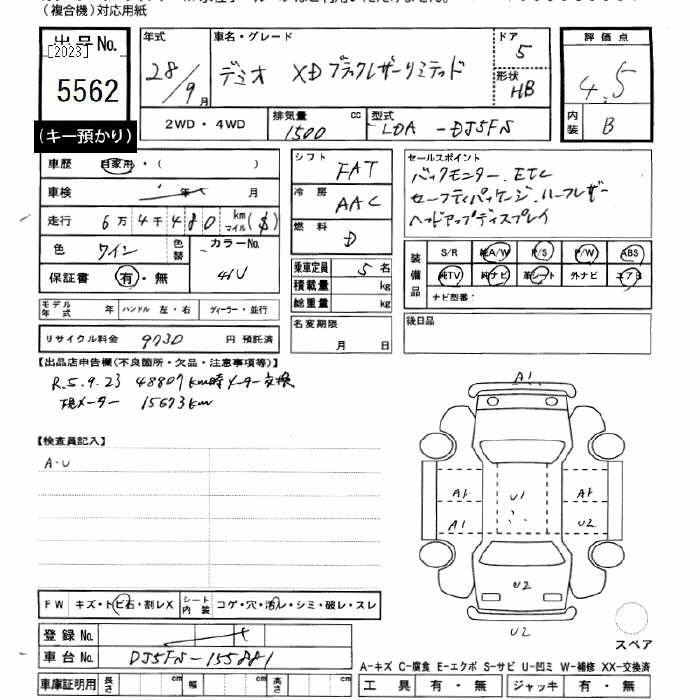 （複合機）対応用紙
出品No.
[2023]
5562
（キー預かり）
年式
28/9月
車名・グレード
デミオ XDブラックレザーリミテッド
ドア
5
形状
HB
評価点
4.5
内装
B
2WD・4WD
排気量
1500 cc
型式
LDA-DJ5FS
車歴 自家用・（ ）
車検 年 月
走行 6万4千480 km マイル ($)
色 ワイン 色替
カラーNo.
41V
保証書 有・無
シフト
FAT
冷房
AAC
燃料
D
乗車定員 5名
積載量 kg
総重量 kg
セールスポイント
バックモニター、ETC
セーフティパッケージ、ハーフレザー
ヘッドアップディスプレイ
装備品
S/R 純A/W P/S P/W ABS
純TV 純ナビ 革シート 外ナビ エアB
ナビ型番：
モデル年式 年 ハンドル 左・右 ディーラー・並行
名変期限
月 日
後日品
リサイクル料金 9730 円 預託済
【出品店申告欄(不良箇所・欠品・注意事項等)】
R.5.9.23 48807km時メーター交換
現メーター 15673km
【検査員記入】
A・U
A1
A1
A1
A1
U2
U1
U2
U2
スペア
FW キズ・トビ石・割レX
シート内装 コゲ・穴・汚レ・シミ・破レ・スレ
登録No.
車台No. DJ5FS-155881
A-キズ C-腐食 E-エクボ S-サビ U-凹ミ W-補修 XX-交換済
車庫証明用 長さ cm 幅 cm 高さ cm
工具 有・無 ジャッキ 有・無